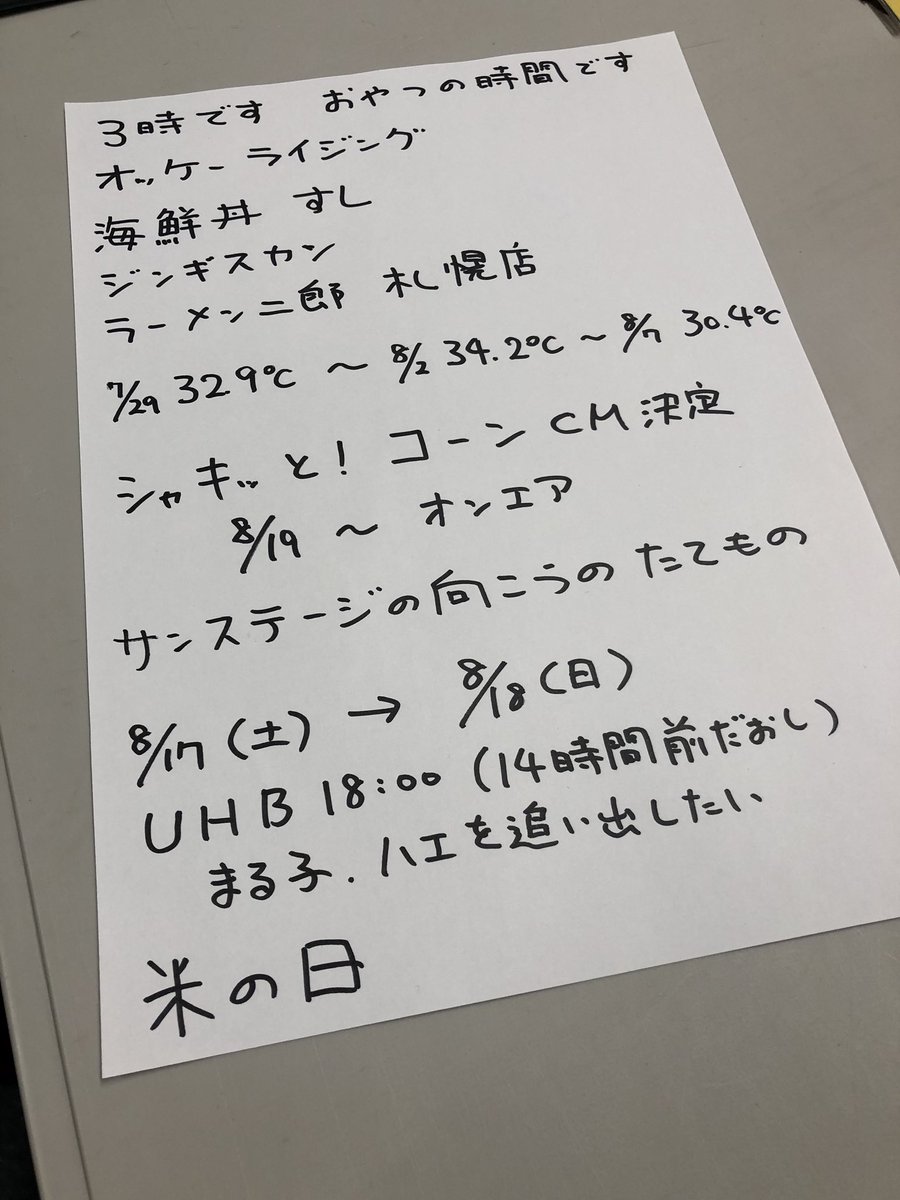 3時です おやつの時間です
オッケー ライジング
海鮮丼 すし
ジンギスカン
ラーメン二郎 札幌店
7/29 32.9℃ 〜 8/2 34.2℃ 〜 8/7 30.4℃
シャキッと! コーン CM決定
8/19 〜 オンエア
サンステージの向こうの たてもの
8/17(土) → 8/18(日)
UHB 18:00 (14時間前だおし)
まる子. ハエを追い出したい
米の日